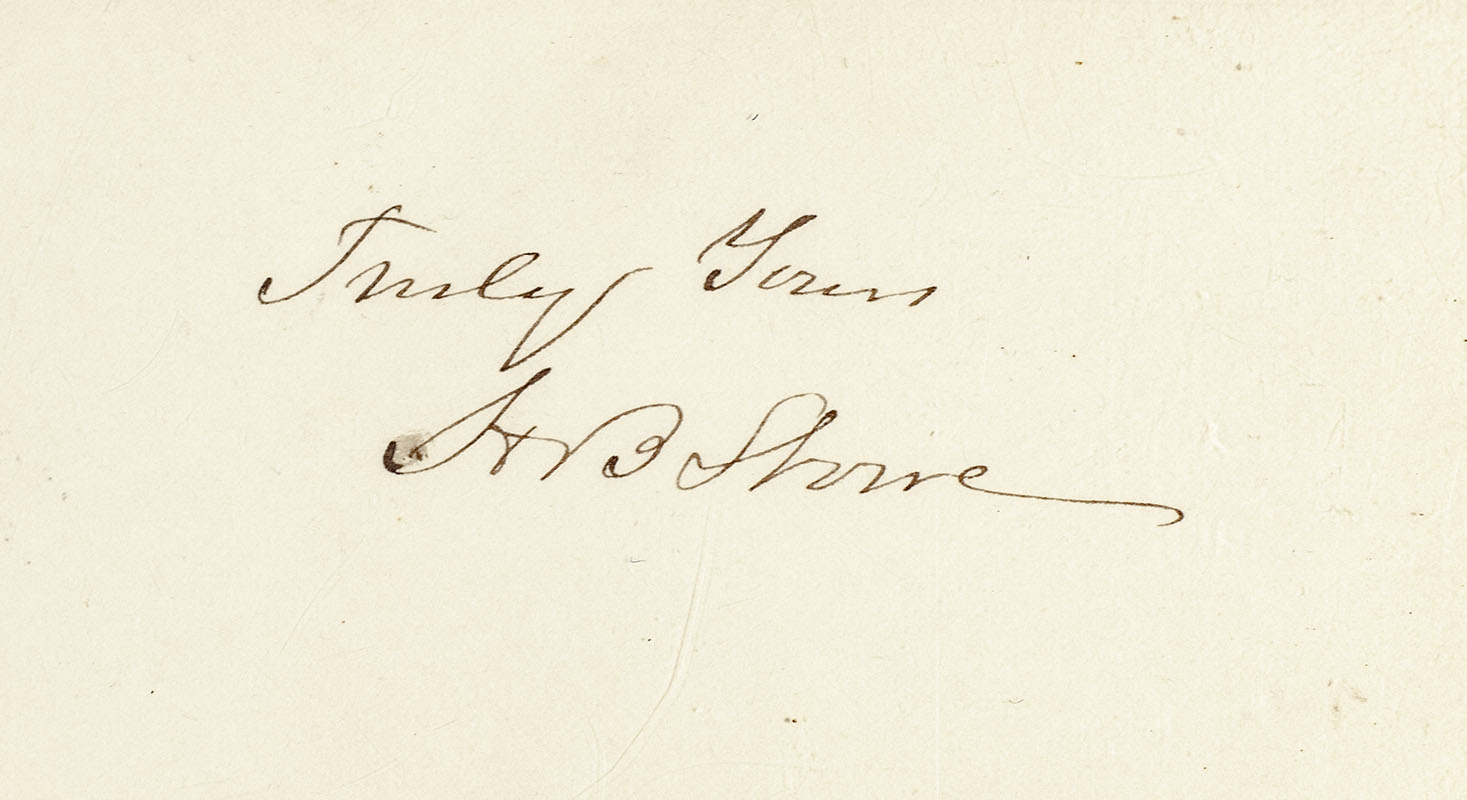 Truly Yours
H B Stowe